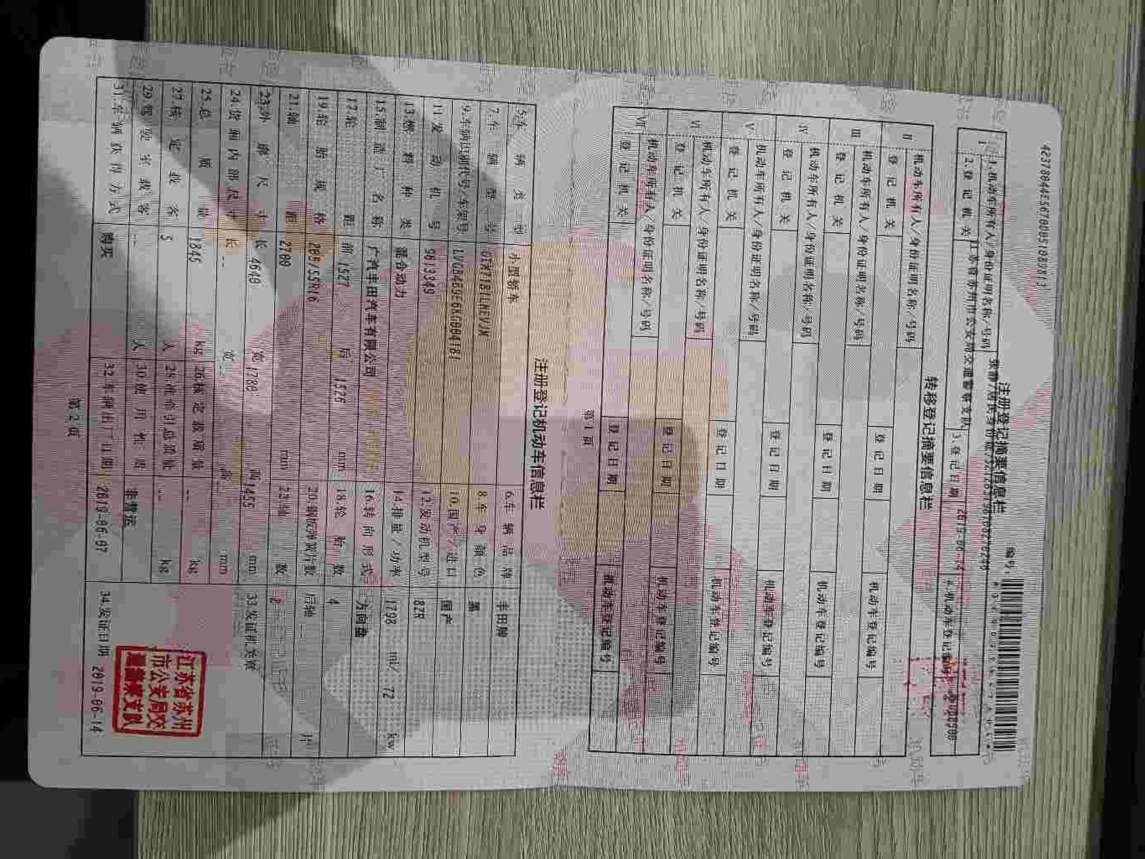 注册登记摘要信息栏
编号:
1.机动车所有人/身份证明名称/号码
2.登记机关 江苏省苏州市公安局交通警察支队 3.登记日期 2019-06-14 4.机动车登记编号
转移登记摘要信息栏
Ⅱ 机动车所有人/身份证明名称/号码
登记机关 登记日期 机动车登记编号
Ⅲ 机动车所有人/身份证明名称/号码
登记机关 登记日期 机动车登记编号
Ⅳ 机动车所有人/身份证明名称/号码
登记机关 登记日期 机动车登记编号
Ⅴ 机动车所有人/身份证明名称/号码
登记机关 登记日期 机动车登记编号
Ⅵ 机动车所有人/身份证明名称/号码
登记机关 登记日期 机动车登记编号
Ⅶ 机动车所有人/身份证明名称/号码
登记机关 登记日期 机动车登记编号
第1页
注册登记机动车信息栏
5.车辆类型 小型轿车 6.车辆品牌 丰田牌
7.车辆型号 8.车身颜色 黑
9.车辆识别代号/车架号 10.国产/进口 国产
11.发动机号 9613349 12.发动机型号 8ZR
13.燃料种类 混合动力 14.排量/功率 1798 ml/ 72 kw
15.制造厂名称 广汽丰田汽车有限公司 16.转向形式 方向盘
17.轮距 前 1527 后 1526 mm 18.轮胎数 4
19.轮胎规格 205/55R16 20.钢板弹簧片数 后轴 -- 片
21.轴距 2700 mm 22.轴数 2
23.外廓尺寸 长 4640 宽 1780 高 1455 mm 33.发证机关章
24.货厢内部尺寸 长 -- 宽 -- 高 -- mm
25.总质量 1845 kg 26.核定载质量 -- kg
27.核定载客 5 人 28.准牵引总质量 -- kg
29.驾驶室载客 -- 人 30.使用性质 非营运
31.车辆获得方式 购买 32.车辆出厂日期 2019-06-07 34.发证日期 2019-06-14
江苏省苏州
市公安局交
通警察支队
第2页